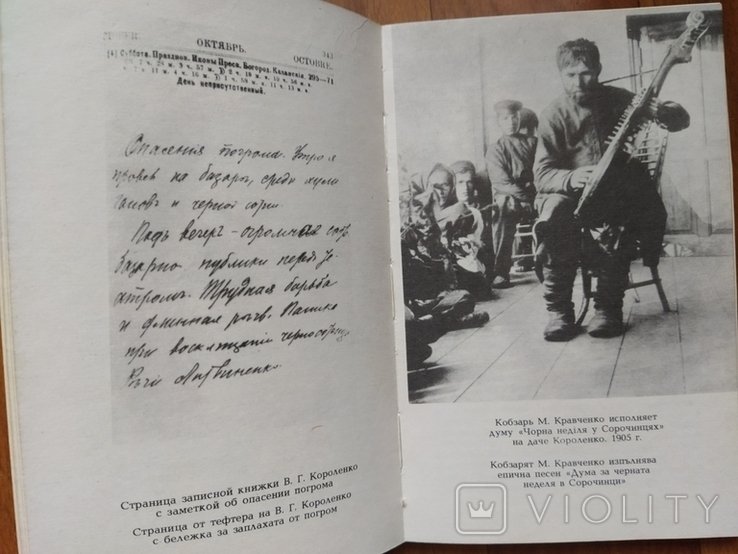 ОКТЯБРЬ.
343
ОСТОВРЕ.
[4] Суббота. Праздник. Иконы Пресв. Богород. Казанскія. 295—71
День неприсутственный.
Опасения погрома. Утро я
провёв на базаре, среди хули
ганов и черной сотни.
Подъ вечеръ - огромная
базарно публики передъ
атромъ. Трудная борьба
и длинная речь.
при восклицаніи черносотенц
Речи Литвиненко.
Страница записной книжки В. Г. Короленко
с заметкой об опасении погрома
Страница от тефтера на В. Г. Короленко
с бележка за заплахата от погром
Кобзарь М. Кравченко исполняет
думу «Чорна неділя у Сорочинцях»
на даче Короленко. 1905 г.
Кобзарят М. Кравченко изпълнява
епична песен «Дума за черната
неделя в Сорочинци»
VIOLITY